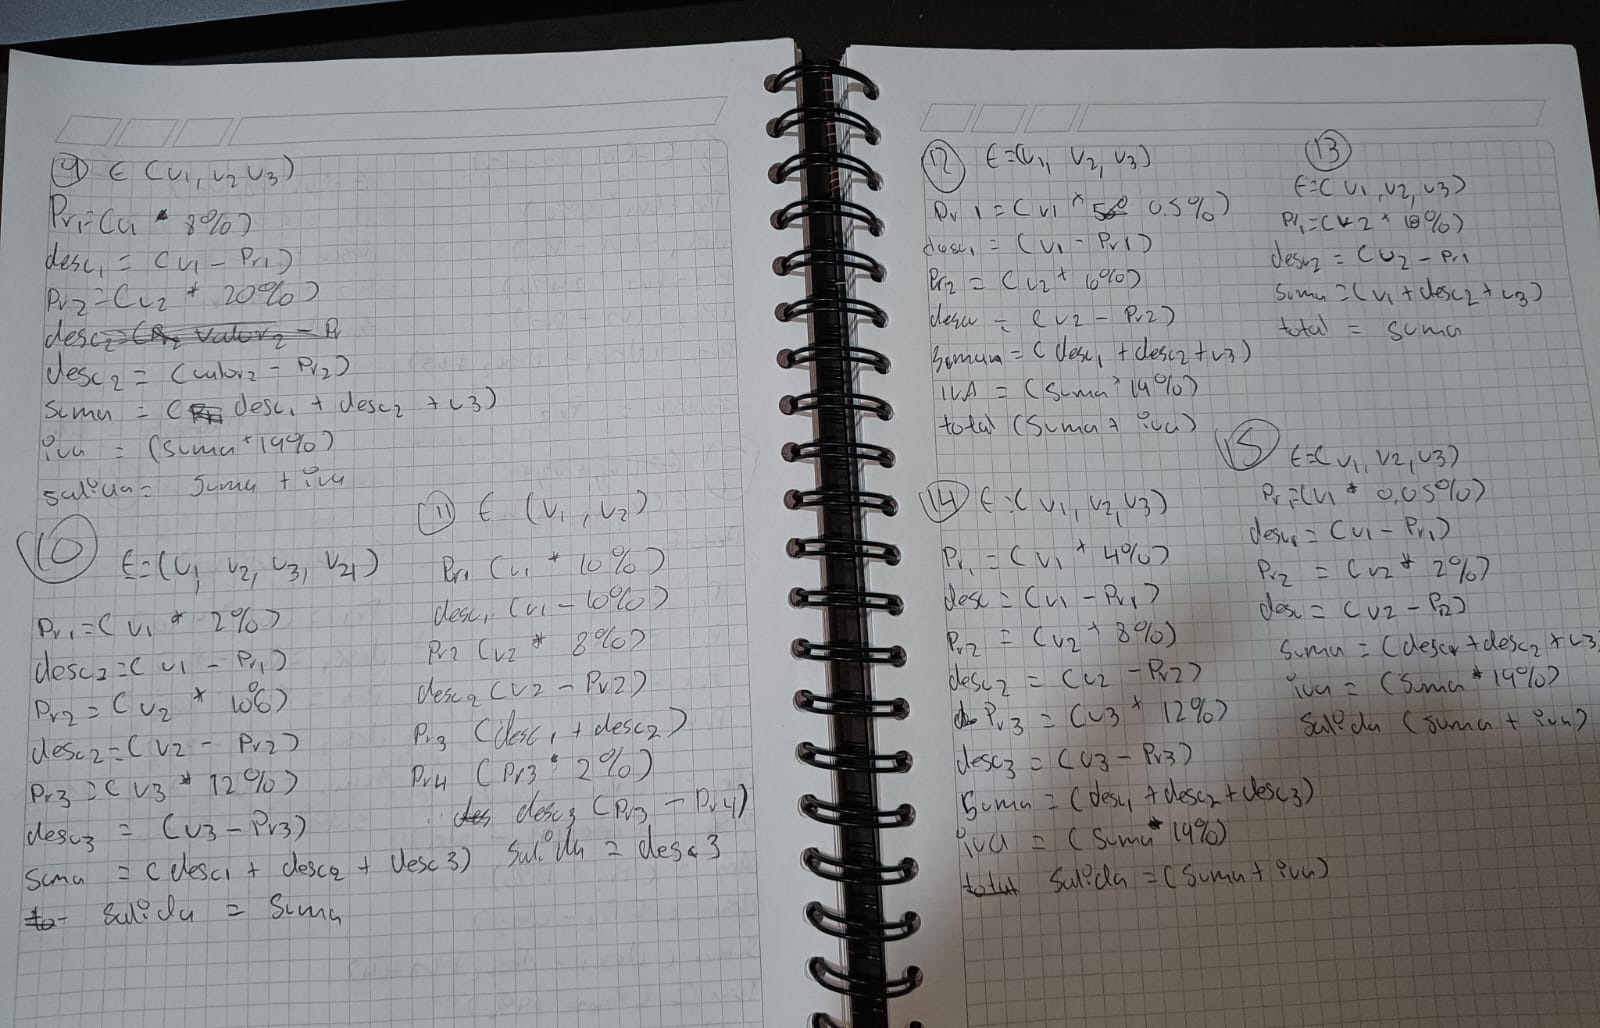 9 E (v1, v2 v3)
Pr1=(v1 * 8%)
desc1 = (v1 - Pr1)
Pr2=(v2 * 20%)
desc2=(Pr2 valor2 - P
desc2 = (valor2 - Pr2)
suma = ( desc1 + desc2 + v3)
iva = (suma * 19%)
salida= suma + iva
10 E=(v1 v2, v3, v4)
Pr1=(v1 * 2%)
desc2=(v1 - Pr1)
Pr2=(v2 * 10%)
desc2=(v2 - Pr2)
Pr3=(v3 * 12%)
desc3 = (v3 - Pr3)
suma = (desc1 + desc2 + desc3)
to- salida = suma
11 E (v1, v2)
Pr1 (v1 * 10%)
desc1 (v1 - 10%)
Pr2 (v2 * 8%)
desc2 (v2 - Pr2)
Pr3 (desc1 + desc2)
Pr4 (Pr3 * 2%)
des desc3 (Pr3 - Pr4)
Salida = desc3
12 E=(v1, v2, v3)
Pr1=(v1 * 0.5%)
desc1 = (v1 - Pr1)
Pr2 = (v2 * 6%)
desc = (v2 - Pr2)
Sumua = (desc1 + desc2 + v3)
IVA = (Suma * 19%)
total (Suma + iva)
13
E=(v1, v2, v3)
Pr1=(v2 * 10%)
desc2 = (v2 - Pr1
suma =(v1 + desc2 + v3)
total = suma
14 E=(v1, v2, v3)
Pr1 =(v1 * 4%)
desc = (v1 - Pr1)
Pr2 = (v2 * 8%)
desc2 = (v2 - Pr2)
d Pr3 = (v3 * 12%)
desc3 = (v3 - Pr3)
Suma = (desc1 + desc2 + desc3)
iva = (Suma * 19%)
total Salida = (Suma + iva)
15 E=(v1, v2, v3)
Pr1=(v1 * 0,05%)
desc1 = (v1 - Pr1)
Pr2 = (v2 * 2%)
desc = (v2 - Pr2)
suma = (desc1 + desc2 + v3)
iva = (Suma * 19%)
Salida (suma + iva)